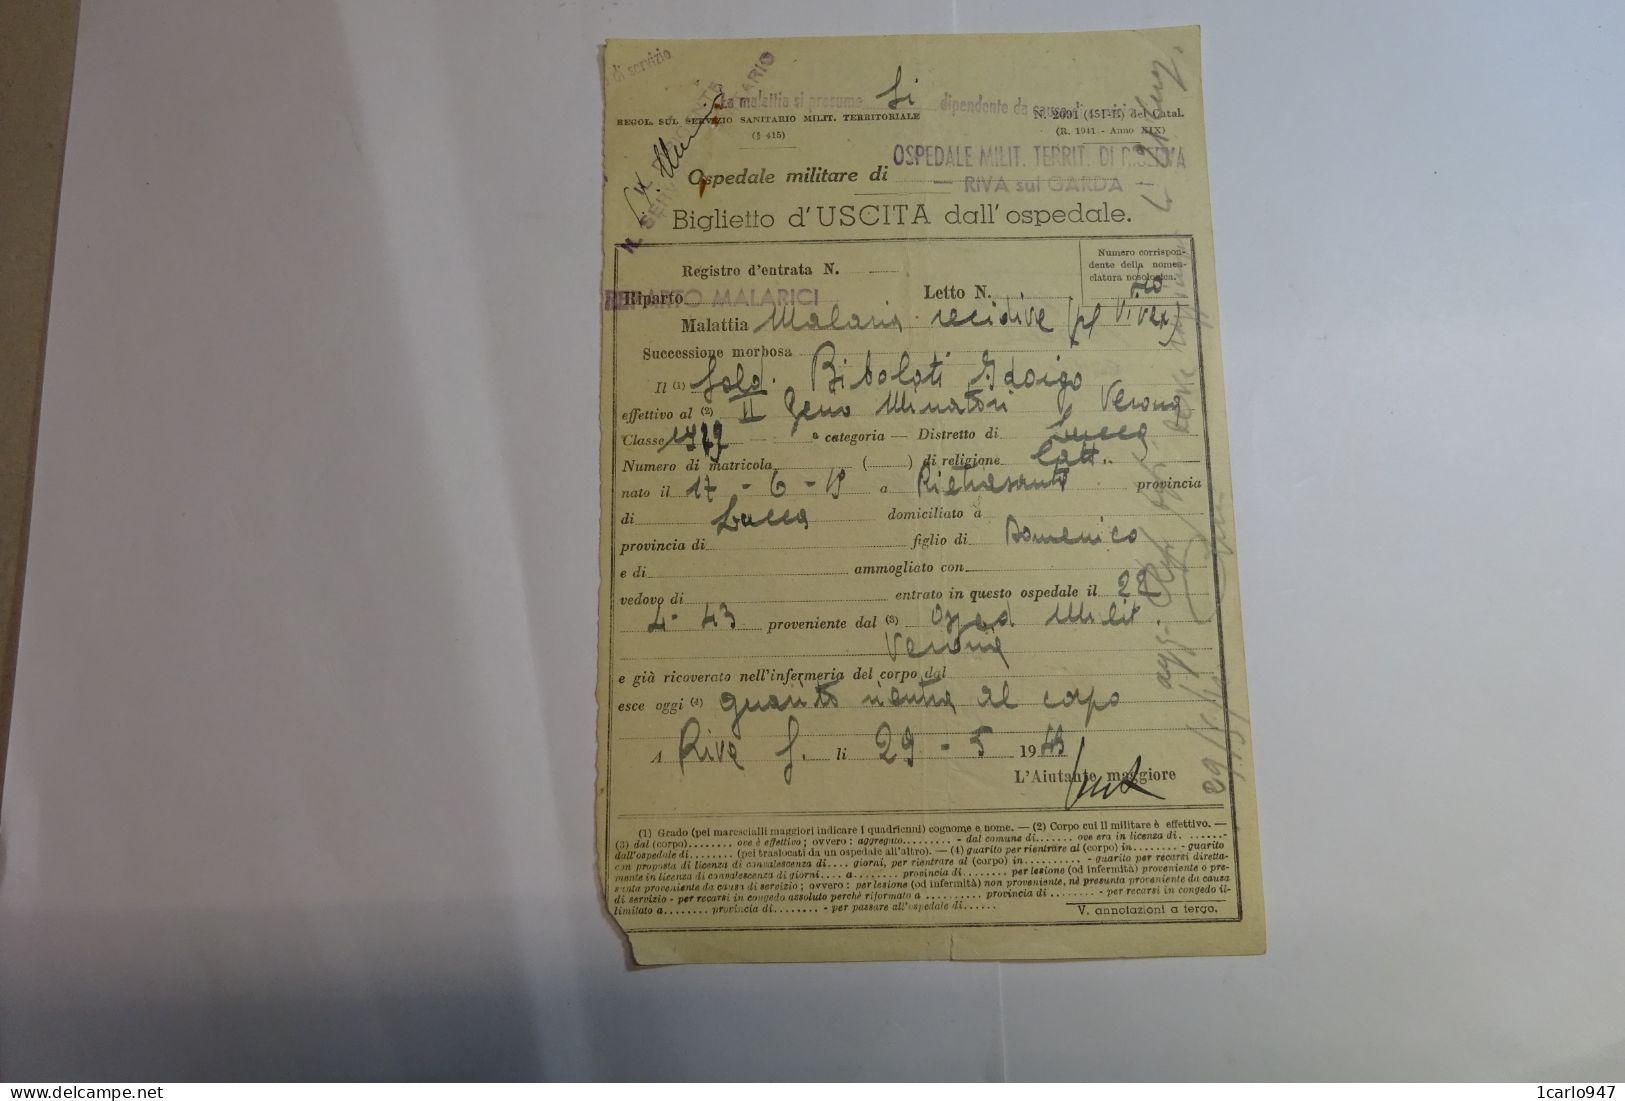 di servizio
La malattia si presume Si dipendente da causa di servizio
REGOL. SUL SERVIZIO SANITARIO MILIT. TERRITORIALE
(§ 415)
N. 2091 (451-B) del Catal.
(R. 1941 - Anno XIX)
OSPEDALE MILIT. TERRIT. DI RISERVA
Ospedale militare di
— RIVA sul GARDA —
Biglietto d'USCITA dall'ospedale.
Numero corrispondente della nomenclatura nosologica.
Registro d'entrata N.
Riparto REPARTO MALARICI Letto N.
Malattia Malaria recidive (pl Vivax)
Successione morbosa
Il (1) Sold. Bibolati
effettivo al (2) II Genio Minatori Verona
Classe 19 a categoria — Distretto di Lucca
Numero di matricola ( ) di religione Catt.
nato il 17 - 6 - 18 a Pietrasanta provincia
di Lucca domiciliato a
provincia di figlio di Domenico
e di ammogliato con
vedovo di entrato in questo ospedale il 22
4 - 43 proveniente dal (3) Osped Milit.
Verona
e già ricoverato nell'infermeria del corpo dal
esce oggi (4) guarito rientra al corpo
A Riva G. li 29 - 5 1943
L'Aiutante maggiore
(1) Grado (pei marescialli maggiori indicare i quadrienni) cognome e nome. — (2) Corpo cui il militare è effettivo. —
(3) dal (corpo)........ ove è effettivo; ovvero: aggregato......... - dal comune di...... ove era in licenza di........-
dall'ospedale di........ (pei traslocati da un ospedale all'altro). — (4) guarito per rientrare al (corpo) in......... - guarito
con proposta di licenza di convalescenza di.... giorni, per rientrare al (corpo) in.......... - guarito per recarsi diretta-
mente in licenza di convalescenza di giorni.... a........ provincia di........ per lesione (od infermità) proveniente o pre-
sunta proveniente da causa di servizio; ovvero: per lesione (od infermità) non proveniente, nè presunta proveniente da causa
di servizio - per recarsi in congedo assoluto perchè riformato a .......... provincia di ........ - per recarsi in congedo il-
limitato a........ provincia di........ - per passare all'ospedale di......
V. annotazioni a tergo.
1carlo947